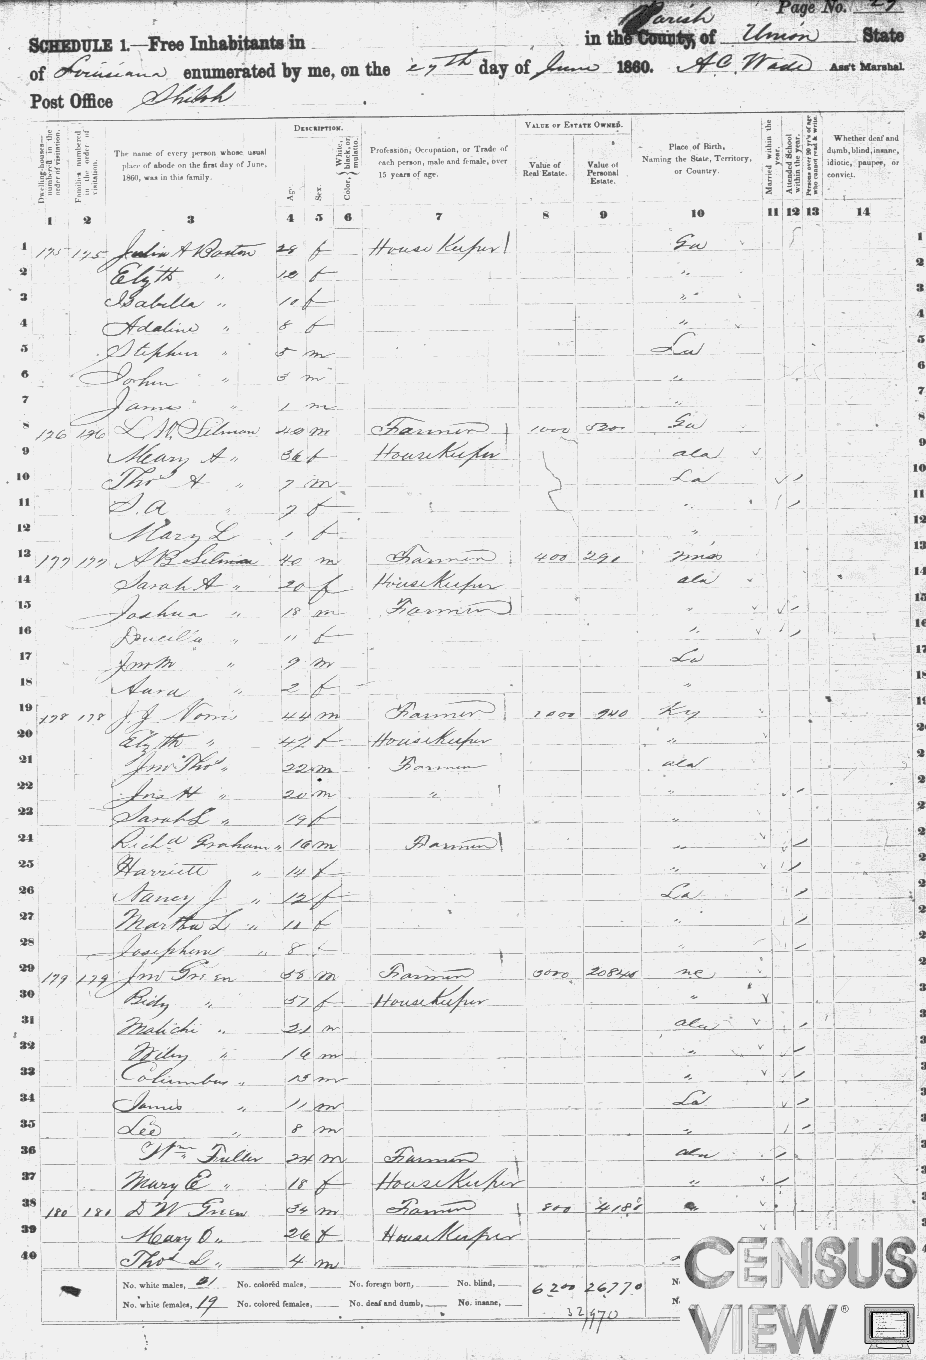 Page No. 27
SCHEDULE 1.—Free Inhabitants in in the County, Parish of Union State
of Louisiana enumerated by me, on the 27th day of June 1860. A C. Wade Ass't Marshal
Post Office Shiloh
Dwelling-houses—numbered in the order of visitation.
Families numbered in the order of visitation.
The name of every person whose usual place of abode on the first day of June, 1860, was in this family.
DESCRIPTION.
Age.
Sex.
Color, White, black, or mulatto.
Profession, Occupation, or Trade of each person, male and female, over 15 years of age.
VALUE OF ESTATE OWNED.
Value of Real Estate.
Value of Personal Estate.
Place of Birth, Naming the State, Territory, or Country.
Married within the year.
Attended School within the year.
Persons over 20 yr's of age who cannot read & write.
Whether deaf and dumb, blind, insane, idiotic, pauper, or convict.
1 2 3 4 5 6 7 8 9 10 11 12 13 14
1 175 175 Julia A Boston 28 f House Keeper Ga 1
2 Elizth " 12 f " 2
3 Isabella " 10 f " 3
4 Adaline " 8 f " 4
5 Stephen " 5 m La 5
6 John " 3 m " 6
7 James " 1 m " 7
8 176 176 L. W. Selman 40 m Farmer 1000 Ga 8
9 Meary A " 36 f HouseKeeper ala 9
10 Thos A " 9 m La 10
11 S. A " 7 f " 11
12 Mary L 1 f " 12
13 177 177 A B Selman 40 m Farmer 400 290 Miss 13
14 Sarah A " 20 f HouseKeeper ala 14
15 Joshua " 18 m Farmer " 15
16 " 11 f " 16
17 Jno M " 9 m La 17
18 " 2 f " 18
19 178 178 J. J. 44 m Farmer 1000 940 Ky
20 Elizth " 47 f HouseKeeper "
21 Jno Thos " 22 m Farmer ala
22 Jos H " 20 m " "
23 Sarah L " 19 f "
24 Richd Graham " 16 m Farmer "
25 Harriett " 14 f "
26 Nancy J " 12 f La
27 Martha L " 10 f "
28 Josephine " 8 f "
29 179 179 Jno Green 58 m Farmer 3000 20840 nc
30 Bidy " 57 f HouseKeeper "
31 Malichi " 21 m ala
32 Wiley " 16 m "
33 Columbus " 13 m "
34 James " 11 m La
35 Lee " 8 m "
36 Wm Fuller 24 m Farmer ala
37 Mary E " 18 f HouseKeeper "
38 180 180 D W Green 34 m Farmer 800 4180 "
39 Meary O " 26 f HouseKeeper
40 Thos L " 4 m
No. white males, 21 No. colored males, No. foreign born, No. blind, 6200 26770 No.
No. white females, 19 No. colored females, No. deaf and dumb, No. insane, No.
32,970
CENSUS
VIEW®